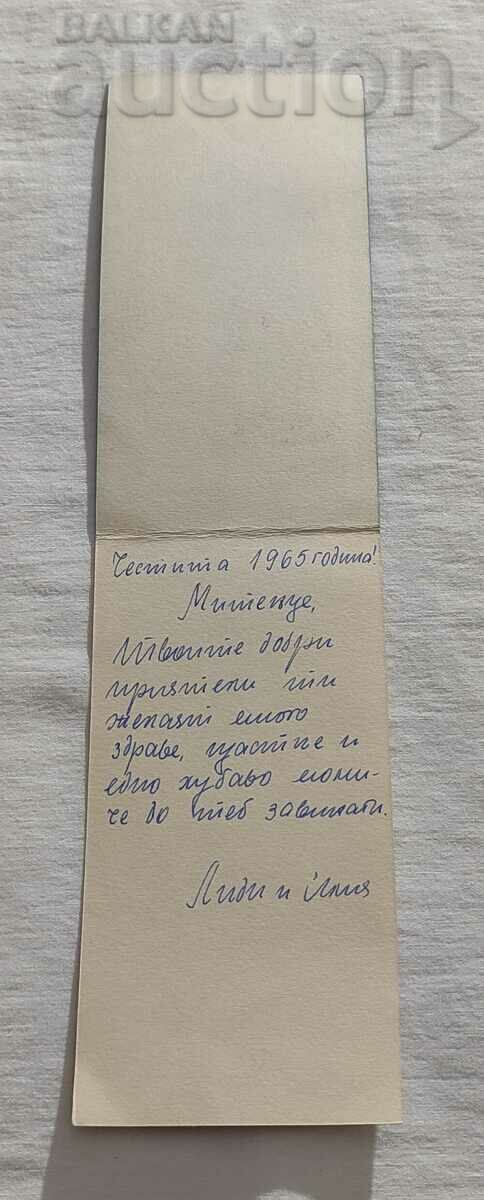 BALKAN
auction
Честита 1965 година!
Митенце,
Твоите добри
приятели ти
желаят много
здраве, щастие и
едно хубаво моми-
че до теб завинаги.
Лиди и Илия